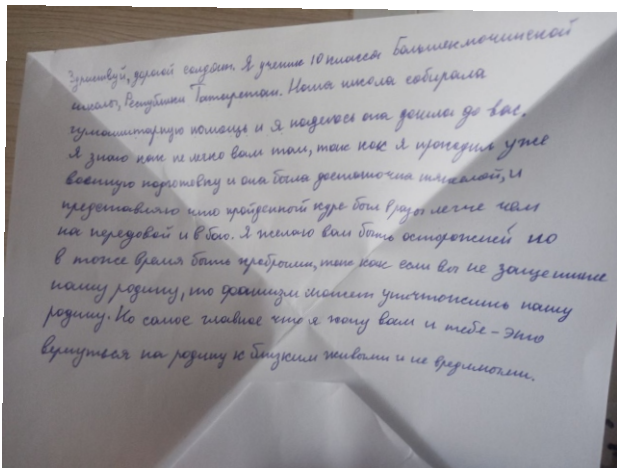 Здравствуй, дорогой солдат. Я ученик 10 класса Большекмочинской
школы, Республики Татарстан. Наша школа собирала
гуманитарную помощь и я надеюсь она дошла до вас.
Я знаю как не легко вам там, так как я проходил уже
военную подготовку и она была достаточна тяжелой, и
представляю что пройденный курс был в разы легче чем
на передовой и в бою. Я желаю вам быть осторожней но
в тоже время быть храбрыми, так как если вы не защитите
нашу родину, то фашизм сможет уничтожить нашу
родину. Но самое главное что я хочу вам и тебе - это
вернуться на родину к близким живыми и не вредимыми.